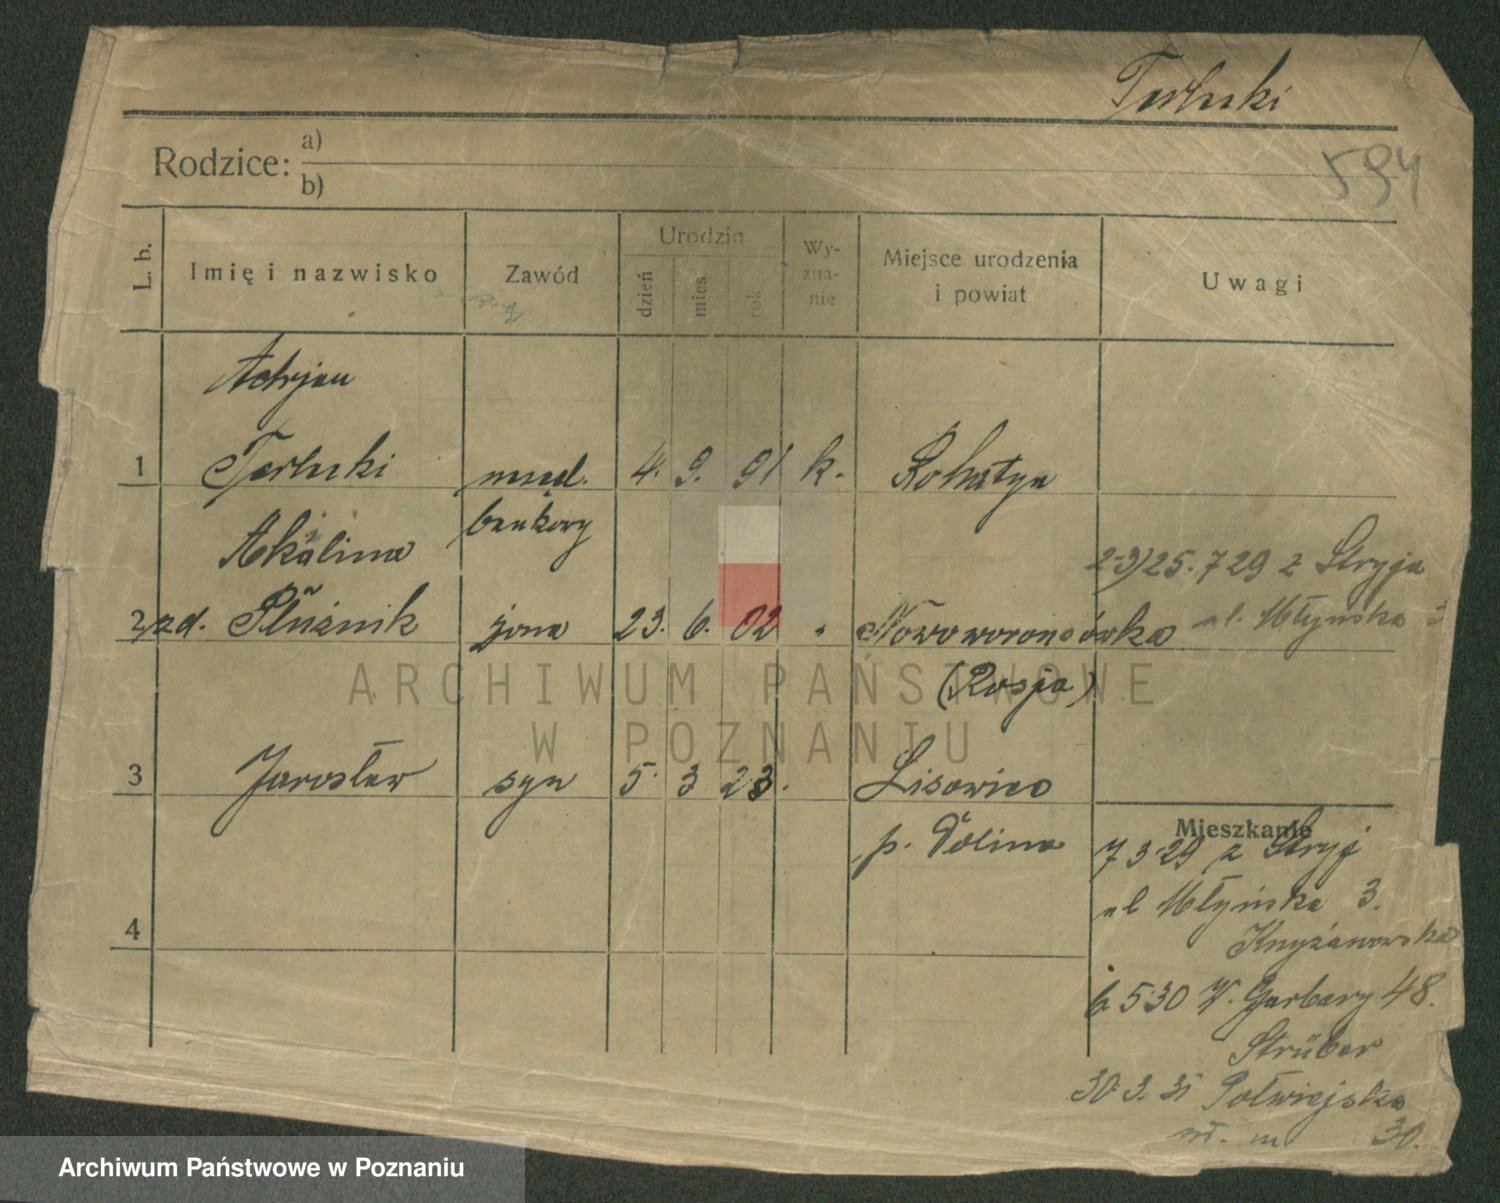 Terlecki
Rodzice: a)
b)
594
L. b.
Imię i nazwisko
Zawód
Urodzin
dzień
mies
rok
Wy-
zna-
nie
Miejsce urodzenia
i powiat
Uwagi
Adrjan
1 Terlecki urzęd. 4. 9. 91 k. Rohatyn
bankowy
Akalina
2 zd. Płuźnik żona 23. 6. 02 " Nowoworoncówka
(Rosja)
2-3) 25.7 29 z Stryja
ul. Młyńska 3
3 Jarosław syn 5. 3 23. Lisowice
p. Dolina
4
Mieszkanie
7 3 29 z Stryj
ul Młyńska 3.
Knyżanowska
6. 5 30 W. Garbary 48.
Strüber
30. 3. 31 Półwiejska
30.
ARCHIWUM PAŃSTWOWE
W POZNANIU
Archiwum Państwowe w Poznaniu